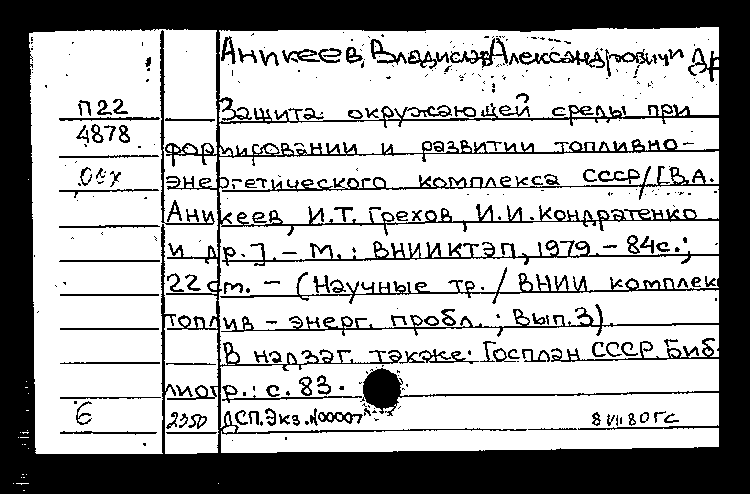 Аникеев, Владислав Александрович и др
П22
4878
Защита окружающей среды при
формировании и развитии топливно-
энергетического комплекса СССР/[В.А.
Аникеев, И.Т. Грехов, И.И. Кондратенко
и др.]. - М.: ВНИИКТЭП, 1979. - 84с.;
22 см. - (Научные тр./ ВНИИ комплек
топлив - энерг. пробл.; Вып.3).
В надзаг. также: Госплан СССР. Биб-
лиогр.: с. 83.
6
2350
ДСП. Экз. №00007
8 VII 80 ГС